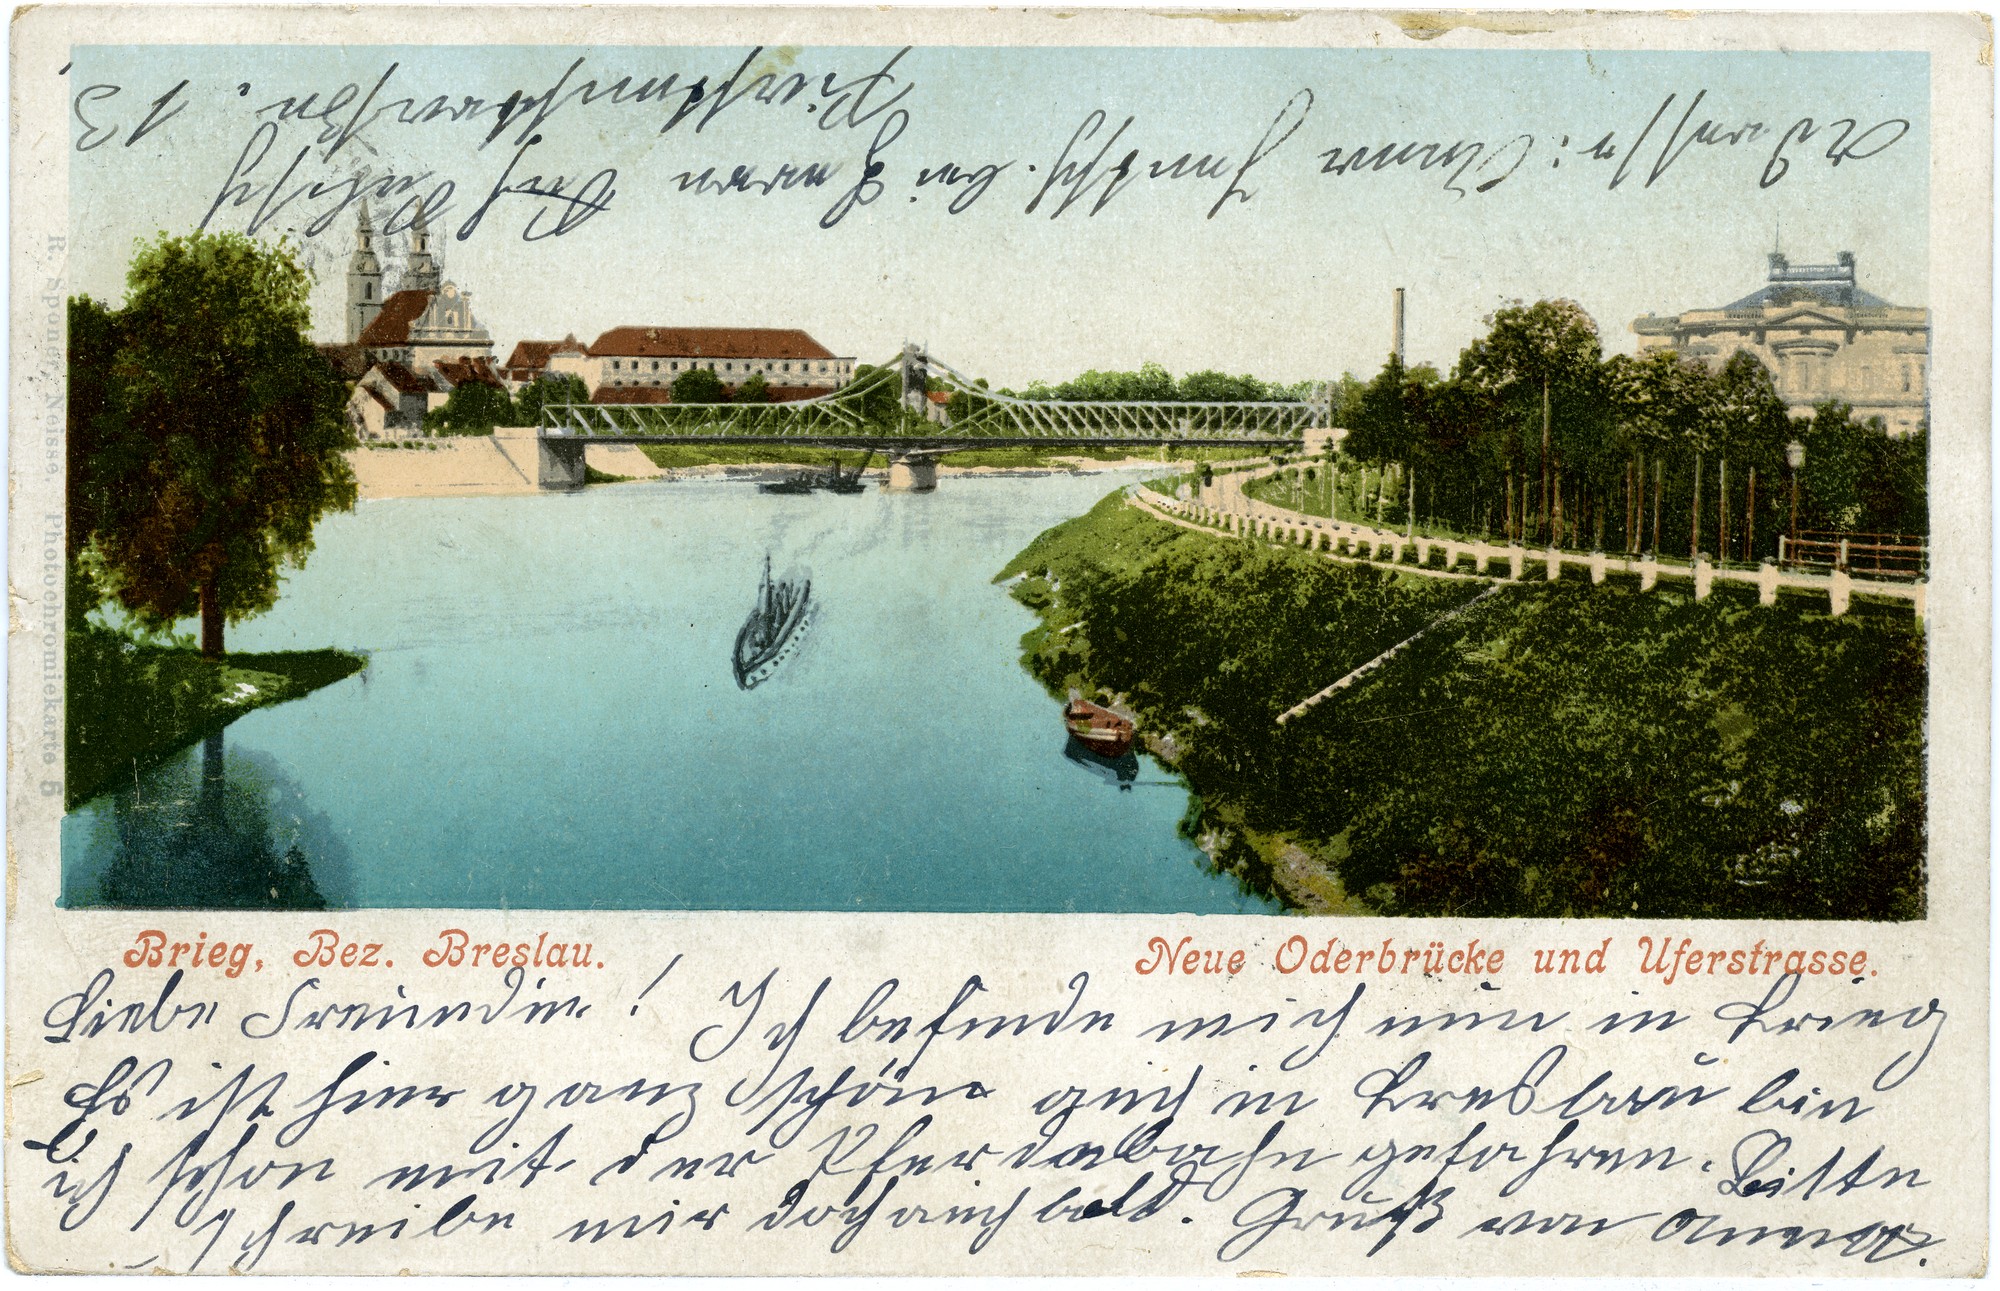 Adresse: Anna Jentsch. bei Frau
13
R. Sponer, Neisse. Photochromiekarte
Brieg, Bez. Breslau.
Neue Oderbrücke und Uferstrasse.
Liebe Freundin! Ich befinde mich nun in Brieg
Es ist hier ganz schön auch in Breslau bin
ich schon mit der Pferdebahn gefahren. Bitte
schreibe mir doch auch bald. Gruß von Anna.